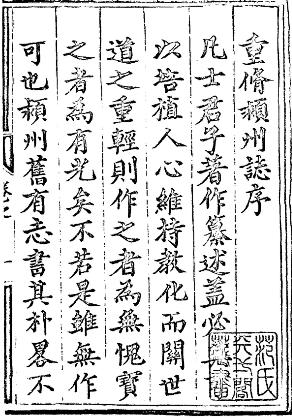 重脩潁州誌序
凡士君子著作纂述盖必
以培植人心維持敎化而關世
道之重輕則作之者爲無愧寳
之者爲有光矣不若是雖無作
可也潁州舊有志書其朴畧不
范氏
天一閣
藏書